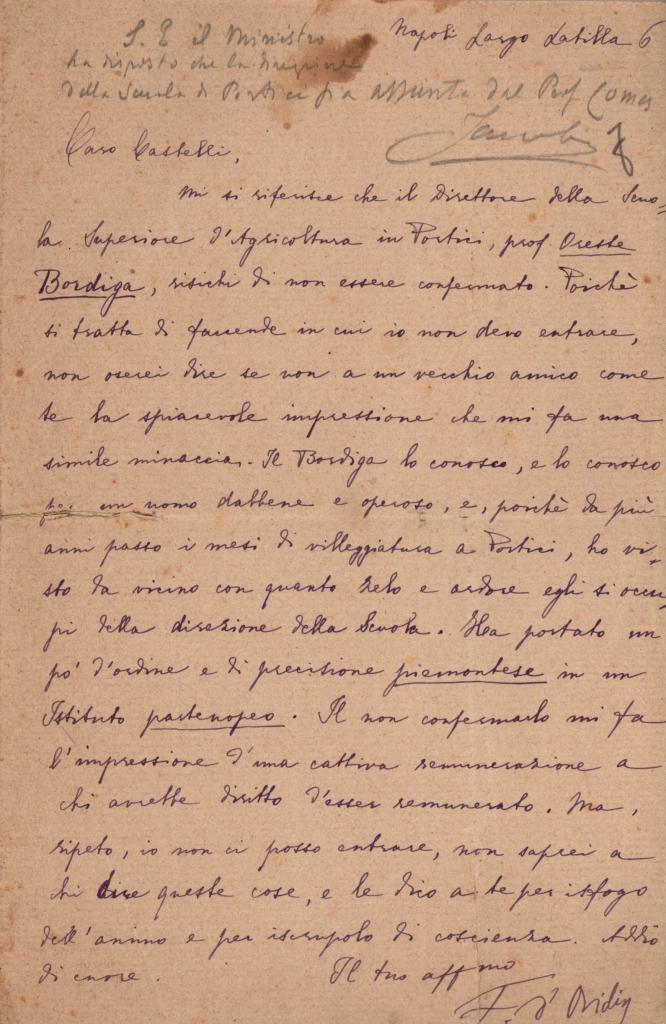 Napoli Largo Latilla 6
S. E il Ministro
ha disposto che la direzione
della Scuola di Portici sia assunta dal Prof Comes
Caro Castelli,
Mi si riferisce che il Direttore della Scuo-
la Superiore d'Agricoltura in Portici, prof Oreste
Bordiga, risichi di non essere confermato. Poichè
si tratta di faccende in cui io non devo entrare,
non oserei dire se non a un vecchio amico come
te la spiacevole impressione che mi fa una
simile minaccia. Il Bordiga lo conosco, e lo conosco
per un uomo dabbene e operoso, e, poichè da più
anni passo i mesi di villeggiatura a Portici, ho vi-
sto da vicino con quanto zelo e ardore egli si occu-
pi della direzione della Scuola. Ha portato un
po' d'ordine e di precisione piemontese in un
Istituto partenopeo. Il non confermarlo mi fa
l'impressione d'una cattiva remunerazione a
chi avrebbe diritto d'esser remunerato. Ma,
ripeto, io non ci posso entrare, non saprei a
chi dire queste cose, e le dico a te per isfogo
dell'animo e per iscrupolo di coscienza. Addio
di cuore. Il tuo aff mo
F. d'Ovidio